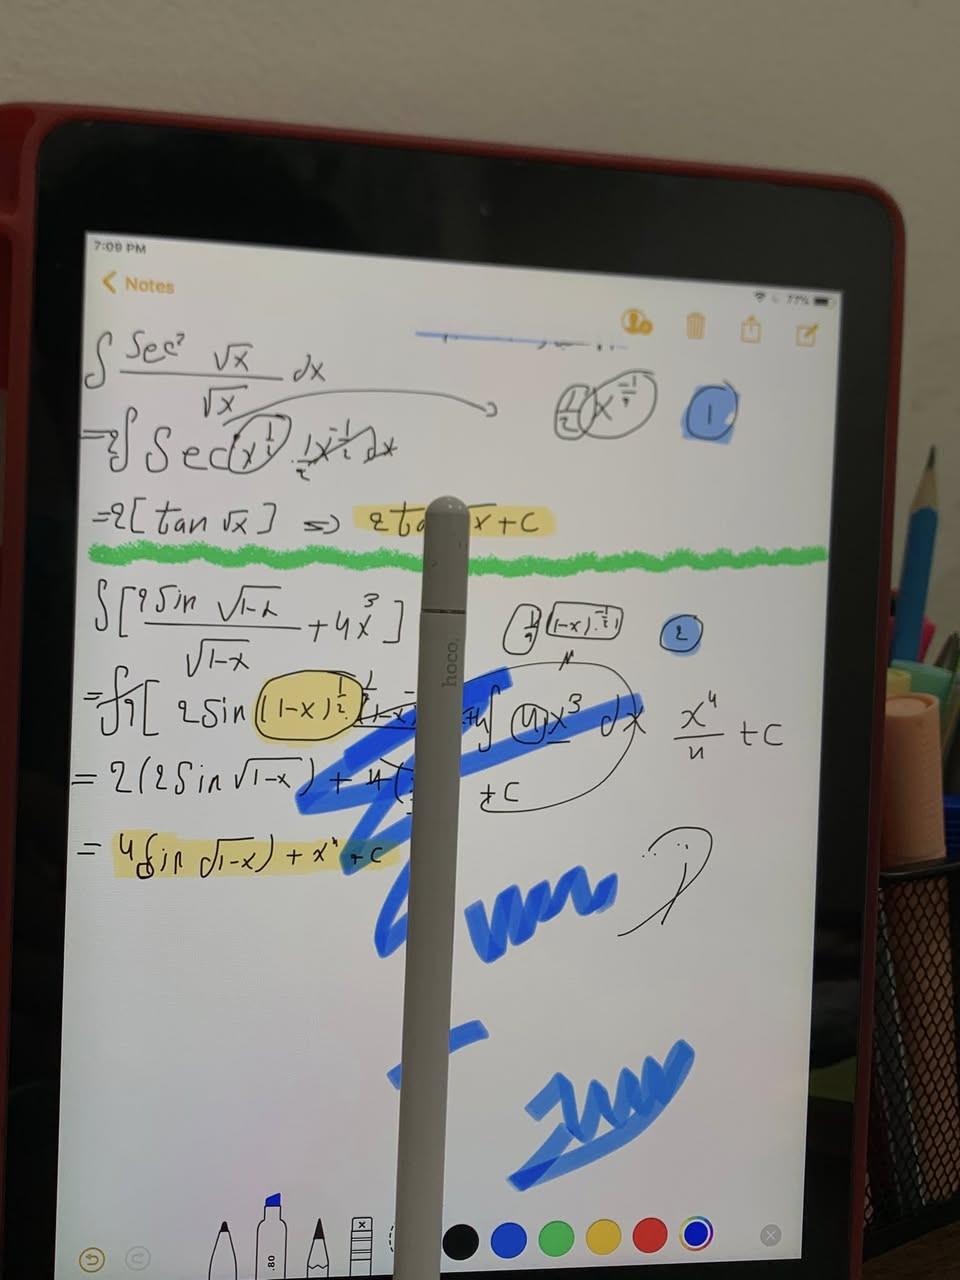 7:09 PM
77%
Notes
∫ Sec² √x / √x dx
1/2 x^-1/2
1
=2∫ Sec (x^1/2) . 1/2 x^-1/2 dx
=2[tan √x] => 2ta x+C
∫[2Sin √1-x / √1-x + 4x³]
(1-x)
2
2Sin (1-x)^1/2
4x³ dx
x⁴/4 +C
= 2(2Sin √1-x) + 4(
+C
= 4Sin √1-x) + x⁴ +C
hoco.
.80